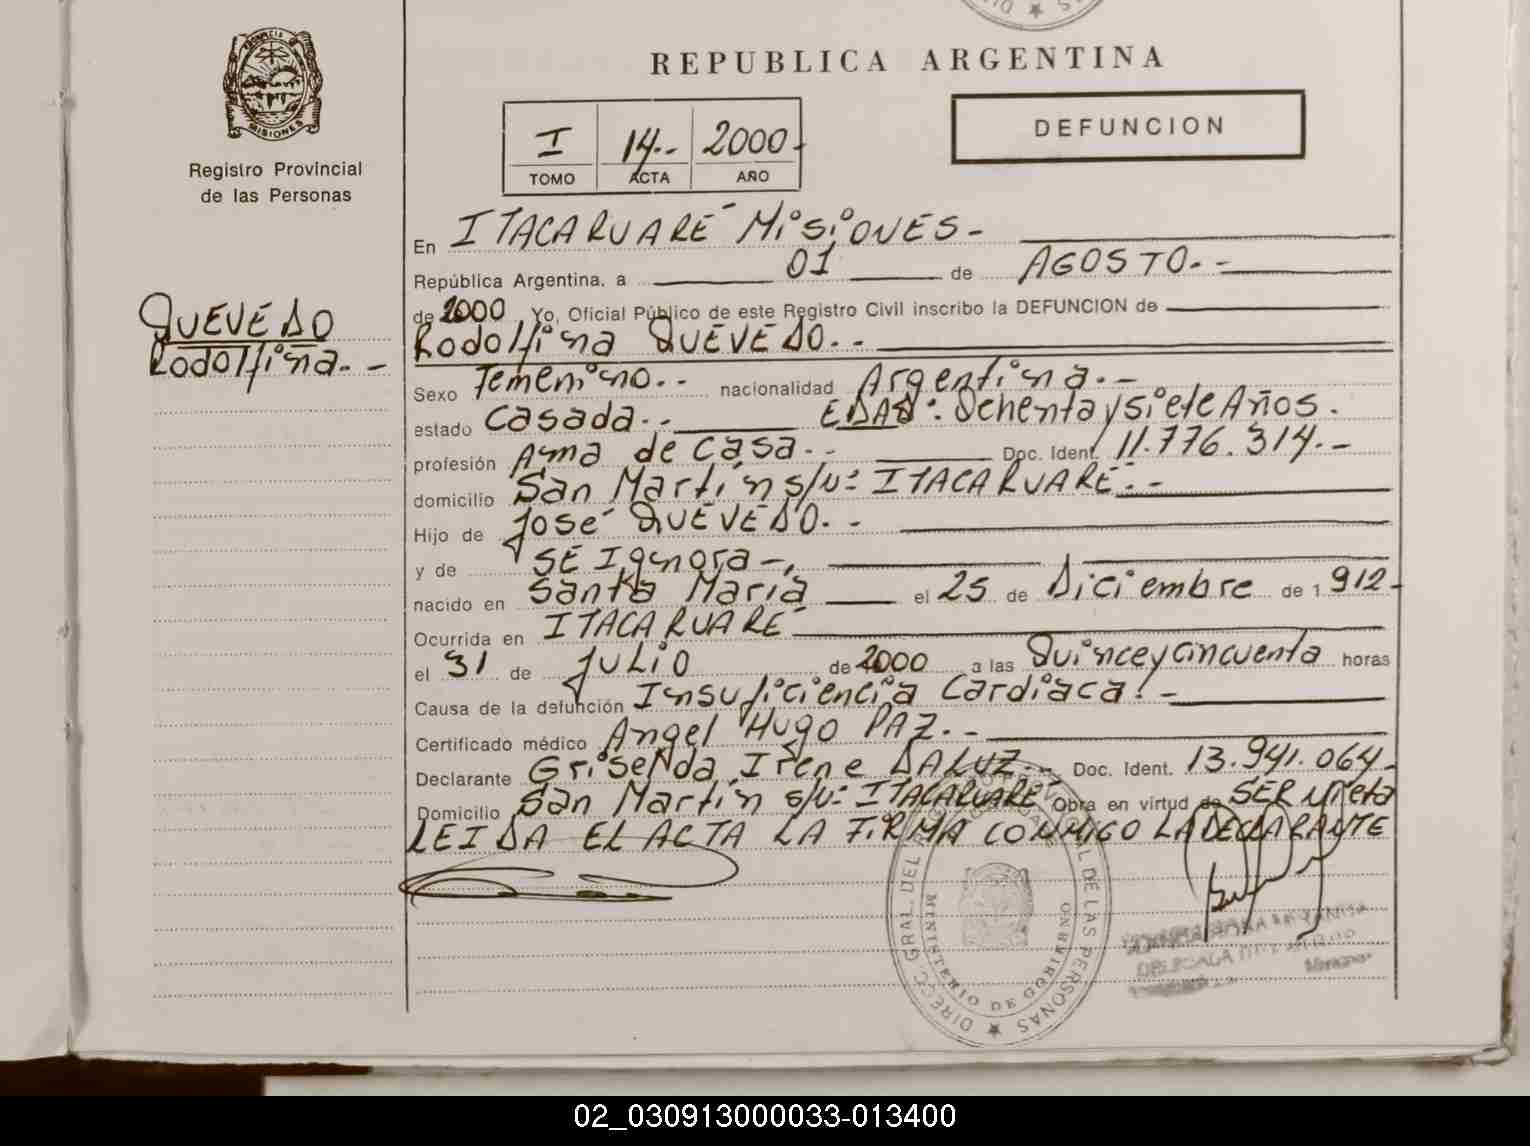 REPUBLICA ARGENTINA
PROVINCIA DE
MISIONES
Registro Provincial
de las Personas
I 14.- 2000.
TOMO ACTA AÑO
DEFUNCION
En ITACARUARÉ MISIONES-
República Argentina, a 01 de AGOSTO.-
de 2000 Yo, Oficial Público de este Registro Civil inscribo la DEFUNCION de
QUEVEDO
Rodolfina.-
Rodolfina QUEVEDO.-
Sexo Femenino.- nacionalidad Argentina.-
estado Casada.- EDAD: Ochenta y siete Años.
profesión Ama de casa.- Doc. Ident. 11.776.314.-
domicilio San Martín s/nº ITACARUARÉ.-
Hijo de José QUEVEDO.-
y de SE Ignora-.
nacido en Santa María el 25 de Diciembre de 1912-
Ocurrida en ITACARUARÉ
el 31 de JULIO de 2000 a las Quince y cincuenta horas
Causa de la defunción Insuficiencia Cardíaca.-
Certificado médico Angel Hugo PAZ.-
Declarante Griselda Irene DALUZ.- Doc. Ident. 13.941.064-
Domicilio San Martín s/nº ITACARUARÉ Obra en virtud de SER Nieta
LEIDA EL ACTA LA FIRMA CONMIGO LA DECLARANTE
DIRECC. GRAL. DEL REGISTRO PROVINCIAL DE LAS PERSONAS
MINISTERIO DE GOBIERNO
Misiones
02_030913000033-013400